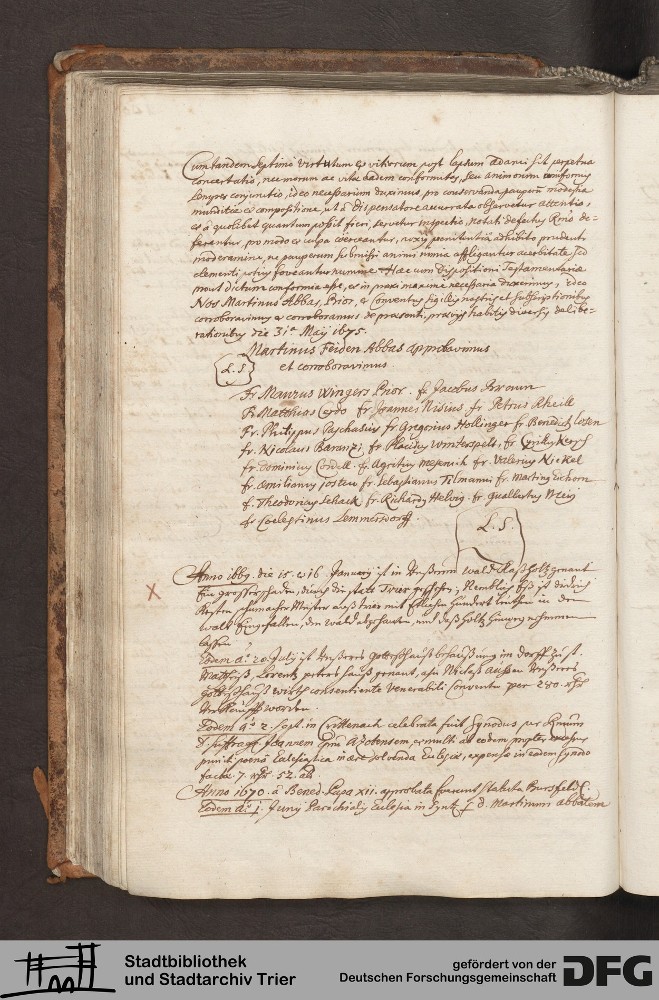 Cum tandem septimò virtutum et vitiorum post lapsum Adami sit perpetua
concertatio, nec morum ac vitae eadem conformitas, seu animorum conformis
semper conjunctio, ideo necessarium duximus, pro conservanda pauperum modestia
munditia et compositione, ut à dispensatore accurata observetur attentio,
et à quolibet quantum possit fieri, servetur inspectio, notati defectus Rmo de-
ferantur, pro modo et culpa coerceantur, poenitentia adhibito prudenti
moderamine, ne pauperum submissi animi nimia affligantur acerbitate sed
clementi potius foveantur numine. Haec cum dispositioni Testamentariae
prout dictum conformia esse, et in praxi maxime necessaria duxerimus, ideo
Nos Martinus Abbas, Prior, et Conventus sigillis nostris et subscriptionibus
corroboravimus et corroboramus de praesenti, praeviis habitis diversis delibe-
rationibus die 31a Maij 1675.
Martinus Feiden Abbas approbavimus
et corroboravimus.
L. S.
Fr. Maurus Wingers Prior. fr. Jacobus
Fr. Matthias Cordo fr. Joannes Nisius fr. Petrus Rheill
Fr. Philippus Paschasius fr. Gregorius Hollinger fr. Benedict LoSen
fr. Nicolaus Baranzi, fr. Placidus Winterspelt, fr. Cyrillus Kerch
fr. Dominicus Cordell. fr. Agritius Mesenich fr. Valerius Nickel
fr. Aemilianus Josten fr. Sebastianus Tilmanni fr. Martinus Eichorn
fr. Theodoricus Schack fr. Richardus Helvig. fr. Gualterus Meis
fr. Coelestinus Lemmersdorff.
L. S.
Anno 1669. die 15. et 16. January ist in unserem wald
Ein grosser schaden, durch die statt Trier geschehen, Nemblich Es ist
schumacher Meister auß trier mit hundert leuthen in den
wald eingefallen, den wald abzuhauen, und daß holtz hinweg nehmmen
lassen
Eodem a° 20 July ist unseres Gotteshauß behausung im dorff zu st.
Matthiß, Lorentz peters hauß genant, ahn Niclaß unseres
Gotteshauß wirth consentiente Venerabili Conventu per 280. rthlr
verkaufft worden.
Eodem a° 2. Sept. in Crittenach celebrata fuit Synodus per Rmum
D. suffrag. Joannem Epm Azotensem,
puniti poena Ecclesiastica in aere solvenda Ecclesiae, expensa in eadem synodo
facta 7. rthlr 52. alb.
Anno 1670. à Bened. Papa XII. approbata fuerunt statuta Bursfeld.
Eodem a° 1. Juny Parochialis Ecclesia in d. Martinum abbatem
X
Stadtbibliothek
und Stadtarchiv Trier
gefördert von der
Deutschen Forschungsgemeinschaft
DFG